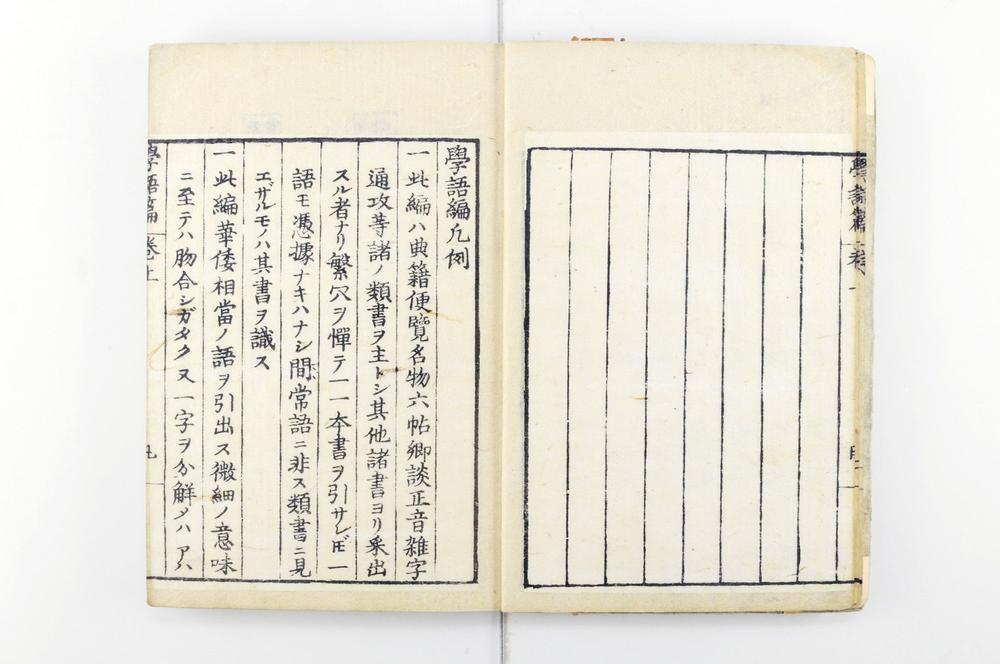 學語編凡例
一此編ハ典籍便覽名物六帖鄉談正音雜字
通攷等諸ノ類書ヲ主トシ其他諸書ヨリ釆出
スル者ナリ繁冗ヲ憚テ一一本書ヲ引サレ𪜈一
語モ憑據ナキハナシ間常語ニ非ス類書ニ見
エザルモノハ其書ヲ識ス
一此編華倭相當ノ語ヲ引出ス微細ノ意味
ニ至テハ脗合シガタク又一字ヲ分解
學語篇 卷上